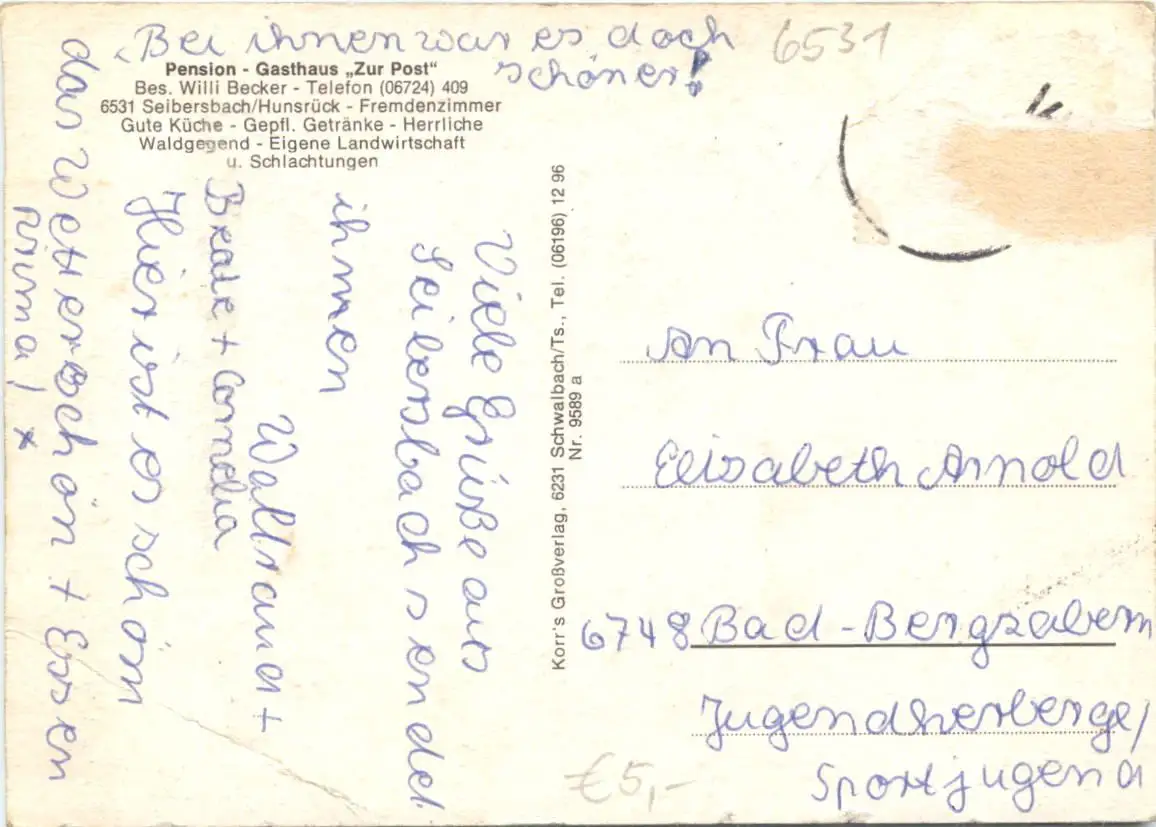 Bei ihnen war es doch
schöner!
6531
Pension - Gasthaus „Zur Post“
Bes. Willi Becker - Telefon (06724) 409
6531 Seibersbach/Hunsrück - Fremdenzimmer
Gute Küche - Gepfl. Getränke - Herrliche
Waldgegend - Eigene Landwirtschaft
u. Schlachtungen
Viele Grüße aus
Seibersbach sendet
ihnen
Waltraud +
Beate + Cornelia
Hier ist es schön
das Wetter schön + Essen
prima!
Korr's Großverlag, 6231 Schwalbach/Ts., Tel. (06196) 12 96
Nr. 9589 a
An Frau
Elisabeth Arnold
6748 Bad-Bergzabern
Jugendherberge/
Sportjugend
€5,-